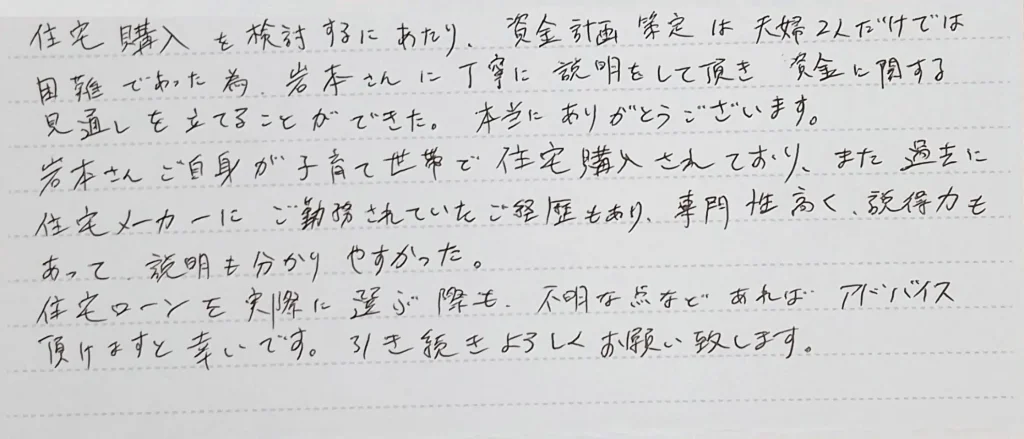 住宅購入を検討するにあたり、資金計画策定は夫婦2人だけでは
困難であった為、岩本さんに丁寧に説明をして頂き資金に関する
見通しを立てることができた。本当にありがとうございます。
岩本さんご自身が子育て世帯で住宅購入されており、また過去に
住宅メーカーにご勤務されていたご経歴もあり、専門性高く、説得力も
あって、説明も分かりやすかった。
住宅ローンを実際に選ぶ際も、不明な点などあればアドバイス
頂けますと幸いです。引き続きよろしくお願い致します。